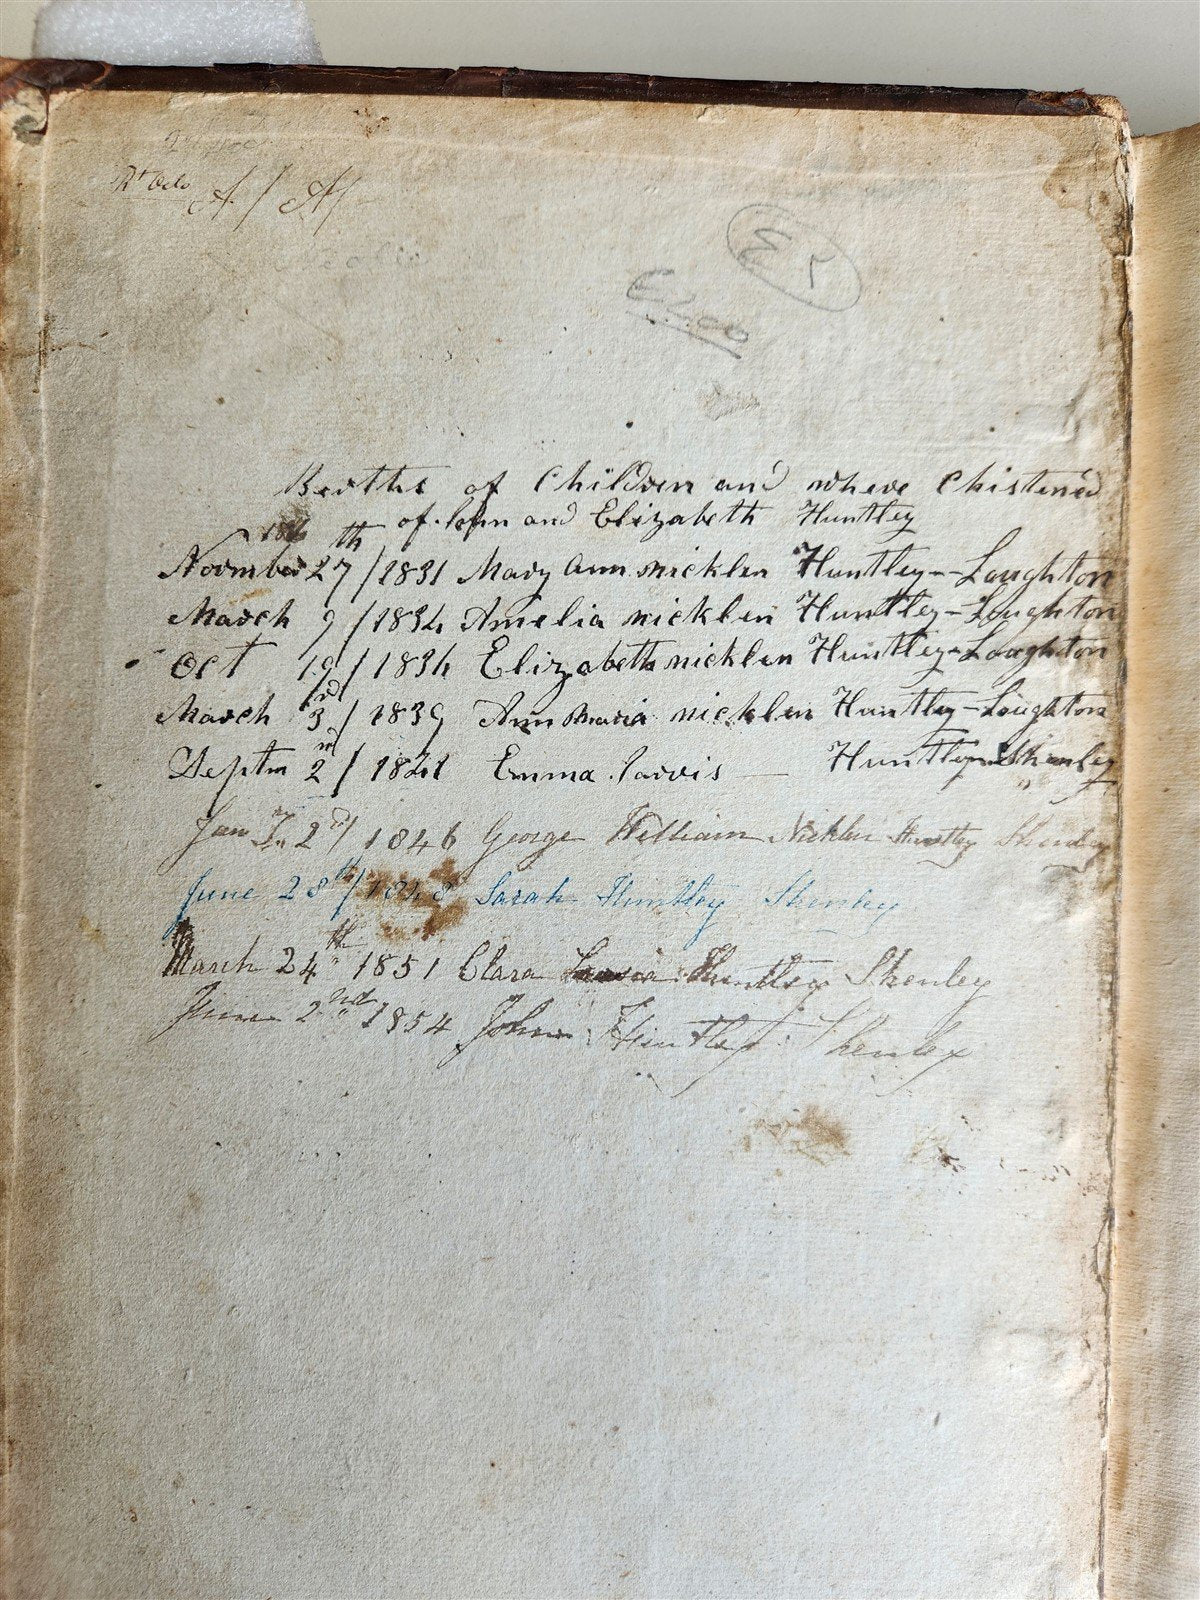 A/ A/
£5
£5.00
Berths of Children and where Chistened
of John and Elizabeth Huntley
Novmber 27th/1831 Mary Ann nicklen Huntley--Loughton
March 9/1834 Amelia nicklen Huntley-Loughton
Oct 19/1836 Elizabeth nicklen Huntley-Loughton
March 3rd/1839 Ann Maria nicklen Huntley-Loughton
Septm 2nd/1841 Emma Jarvis — Huntley Shenley
Jan 2nd/1846 George William Nicklen Huntley Shenley
June 28th/1848 Sarah Huntley Shenley
March 24th 1851 Clara Huntley Shenley
June 2nd 1854 John Huntley Shenley